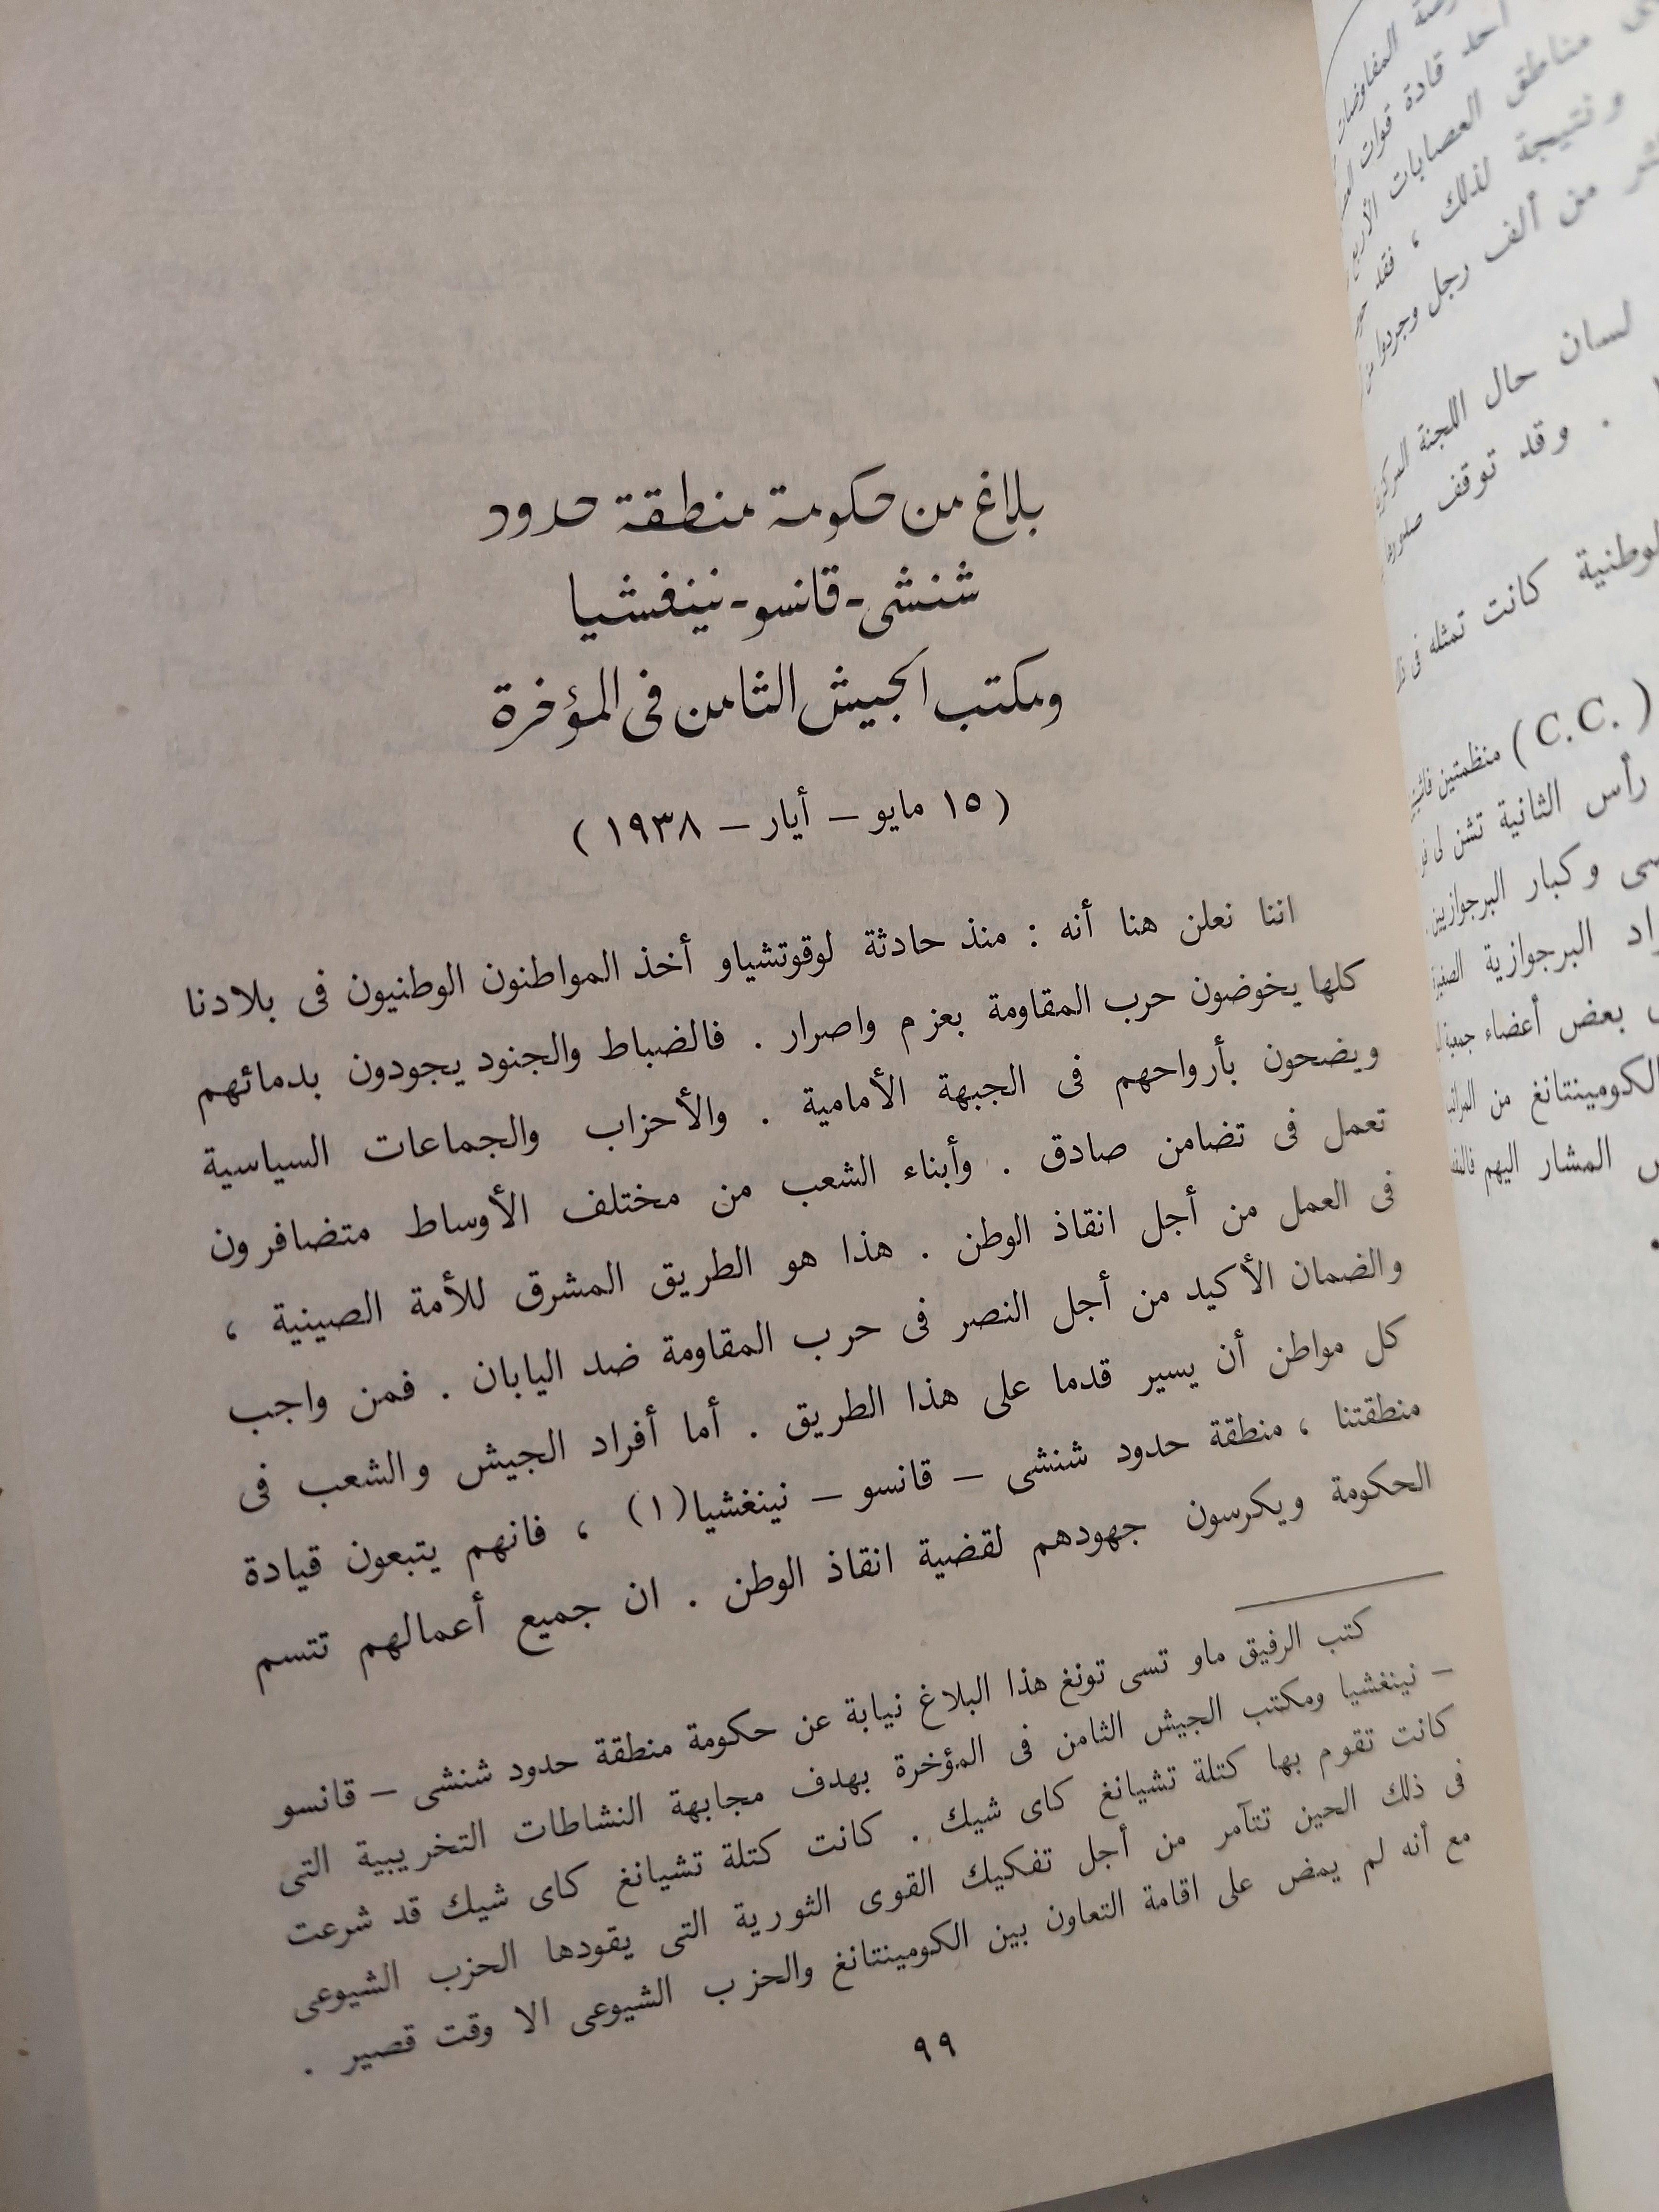 بلاغ من حكومة منطقة حدود
شنشى - قانسو - نينغشيا
ومكتب الجيش الثامن فى المؤخرة
( ١٥ مايو – أيار – ١٩٣٨ )
اننا نعلن هنا أنه : منذ حادثة لوقوتشياو أخذ المواطنون الوطنيون فى بلادنا
كلها يخوضون حرب المقاومة بعزم واصرار . فالضباط والجنود يجودون بدمائهم
ويضحون بأرواحهم فى الجبهة الأمامية . والأحزاب والجماعات السياسية
تعمل فى تضامن صادق . وأبناء الشعب من مختلف الأوساط متضافرون
فى العمل من أجل انقاذ الوطن . هذا هو الطريق المشرق للأمة الصينية ،
والضمان الأكيد من أجل النصر فى حرب المقاومة ضد اليابان . فمن واجب
كل مواطن أن يسير قدما على هذا الطريق . أما أفراد الجيش والشعب فى
منطقتنا ، منطقة حدود شنشى – قانسو – نينغشيا(١) ، فانهم يتبعون قيادة
الحكومة ويكرسون جهودهم لقضية انقاذ الوطن . ان جميع أعمالهم تتسم
كتب الرفيق ماو تسى تونغ هذا البلاغ نيابة عن حكومة منطقة حدود شنشى – قانسو
– نينغشيا ومكتب الجيش الثامن فى المؤخرة بهدف مجابهة النشاطات التخريبية التى
كانت تقوم بها كتلة تشيانغ كاى شيك . كانت كتلة تشيانغ كاى شيك قد شرعت
فى ذلك الحين تتآمر من أجل تفكيك القوى الثورية التى يقودها الحزب الشيوعى
مع أنه لم يمض على اقامة التعاون بين الكومينتانغ والحزب الشيوعى الا وقت قصير .
٩٩
المفاوضات
أحد قادة قوات
مناطق العصابات الأربع
ونتيجة لذلك ، فقد
من ألف رجل وجردوا
لسان حال اللجنة
. وقد توقف
كانت تمثله فى
(C.C.) منظمتين
رأس الثانية تشن لى
وكبار البرجوازيين
البرجوازية
بعض أعضاء
الكومينتانغ من
المشار اليهم